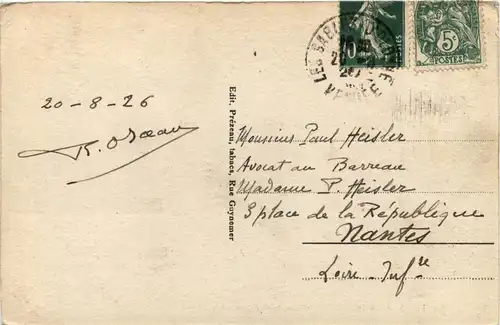 LES SABLES D'OLONNE
VENDÉE
5c
POSTES
20-8-26
Edit. Prézeau, tabacs, Rue Guynemer
Monsieur Paul Heisler
Avocat au Barreau
Madame P. Heisler
3 place de la République
Nantes
Loire-Infre